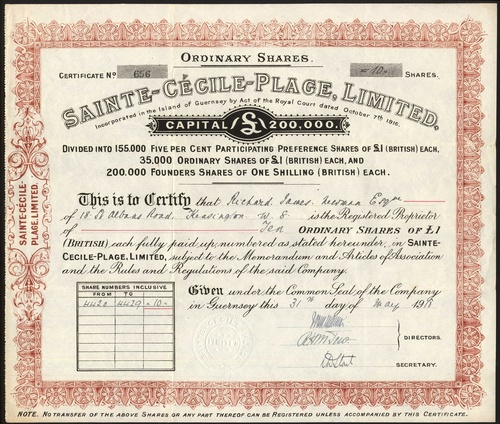 ORDINARY SHARES.
CERTIFICATE No 656 = 10 = SHARES.
SAINTE-CÉCILE-PLAGE, LIMITED.
Incorporated in the Island of Guernsey by Act of the Royal Court dated October 7th 1916.
CAPITAL £ 200,000.
DIVIDED INTO 155,000 FIVE PER CENT PARTICIPATING PREFERENCE SHARES OF £1 (BRITISH) EACH,
35,000 ORDINARY SHARES OF £1 (BRITISH) EACH, AND
200,000 FOUNDERS SHARES OF ONE SHILLING (BRITISH) EACH.
This is to Certify that Richard James Newman Esqre
of 18 St Albans Road, Kensington W. 8 is the Registered Proprietor
of Ten ORDINARY SHARES OF £1
(BRITISH) each fully paid up, numbered as stated hereunder, in SAINTE-
CECILE-PLAGE, LIMITED, subject to the Memorandum and Articles of Association
and the Rules and Regulations of the said Company.
SHARE NUMBERS INCLUSIVE
FROM TO
4420 4429 = 10 =
Given under the Common Seal of the Company
in Guernsey this 31st day of May 191
DIRECTORS.
SECRETARY.
SAINTE-CÉCILE-
PLAGE, LIMITED.
NOTE. NO TRANSFER OF THE ABOVE SHARES OR ANY PART THEREOF CAN BE REGISTERED UNLESS ACCOMPANIED BY THIS CERTIFICATE.